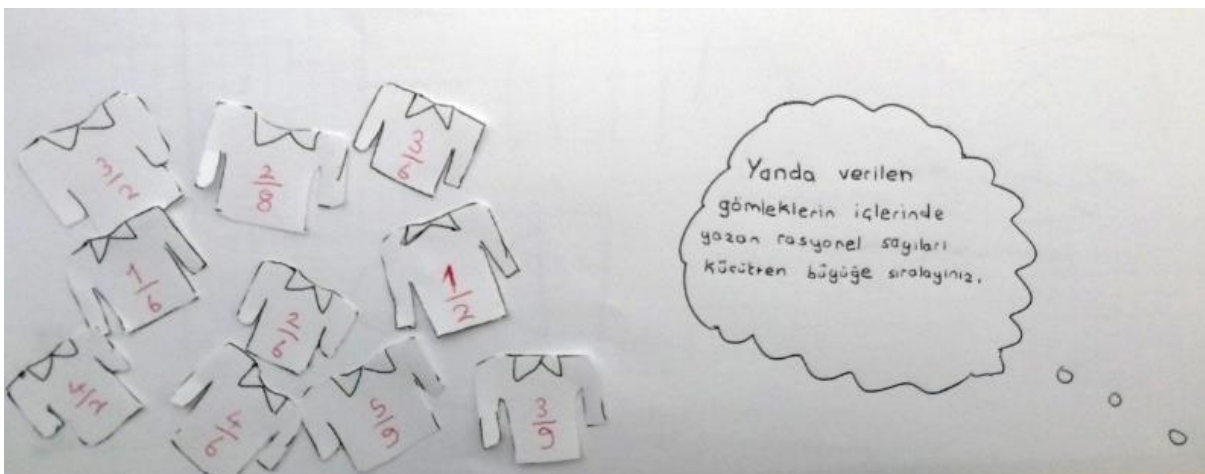 3/2
2/8
3/6
1/6
2/6
1/2
4/2
4/6
5/9
3/9
Yanda verilen
gömleklerin içlerinde
yazan rasyonel sayıları
küçükten büyüğe sıralayınız.